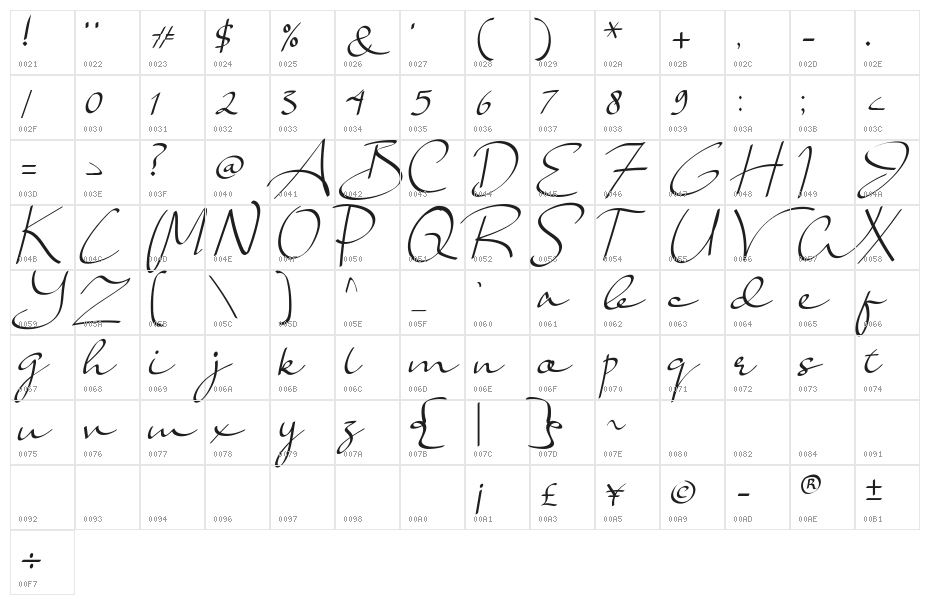 ! " # $ % & ' ( ) * + , - .
0021 0022 0023 0024 0025 0026 0027 0028 0029 002A 002B 002C 002D 002E
/ 0 1 2 3 4 5 6 7 8 9 : ; <
002F 0030 0031 0032 0033 0034 0035 0036 0037 0038 0039 003A 003B 003C
= > ? @ A B C D E F G H I J
003D 003E 003F 0040 0041 0042 0043 0044 0045 0046 0047 0048 0049 004A
K L M N O P Q R S T U V W X
004B 004C 004D 004E 004F 0050 0051 0052 0053 0054 0055 0056 0057 0058
Y Z [ \ ] ^ _ ` a b c d e f
0059 005A 005B 005C 005D 005E 005F 0060 0061 0062 0063 0064 0065 0066
g h i j k l m n o p q r s t
0067 0068 0069 006A 006B 006C 006D 006E 006F 0070 0071 0072 0073 0074
u v w x y z { | } ~
0075 0076 0077 0078 0079 007A 007B 007C 007D 007E 0080 0082 0084 0091
¡ £ ¥ © - ® ±
0092 0093 0094 0096 0097 0098 00A0 00A1 00A3 00A5 00A9 00AD 00AE 00B1
÷
00F7